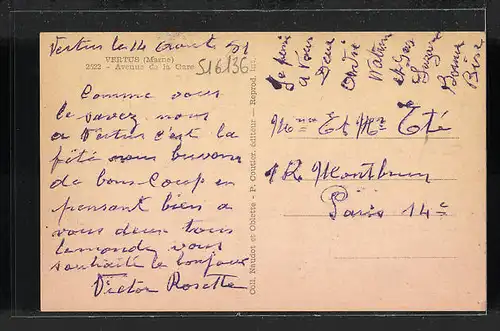 Vertus le 14 Aout 51
VERTUS (Marne)
2222 - Avenue de la Gare
516136
Comme vous
le savez nous
a Vertus c'est la
fête nous buvons
de bons Coup en
pensant bien a
vous deux tous
lemonde vous
souhaite le bonjour
Victor Rosette
Coll. Naudot et Oblette - P. Coutier, éditeur - Reprod. int.
Je pense
a Vous
Deux
Bonne
Bise
Mme Et Mr Eté
1R Montbrun
Paris 14e